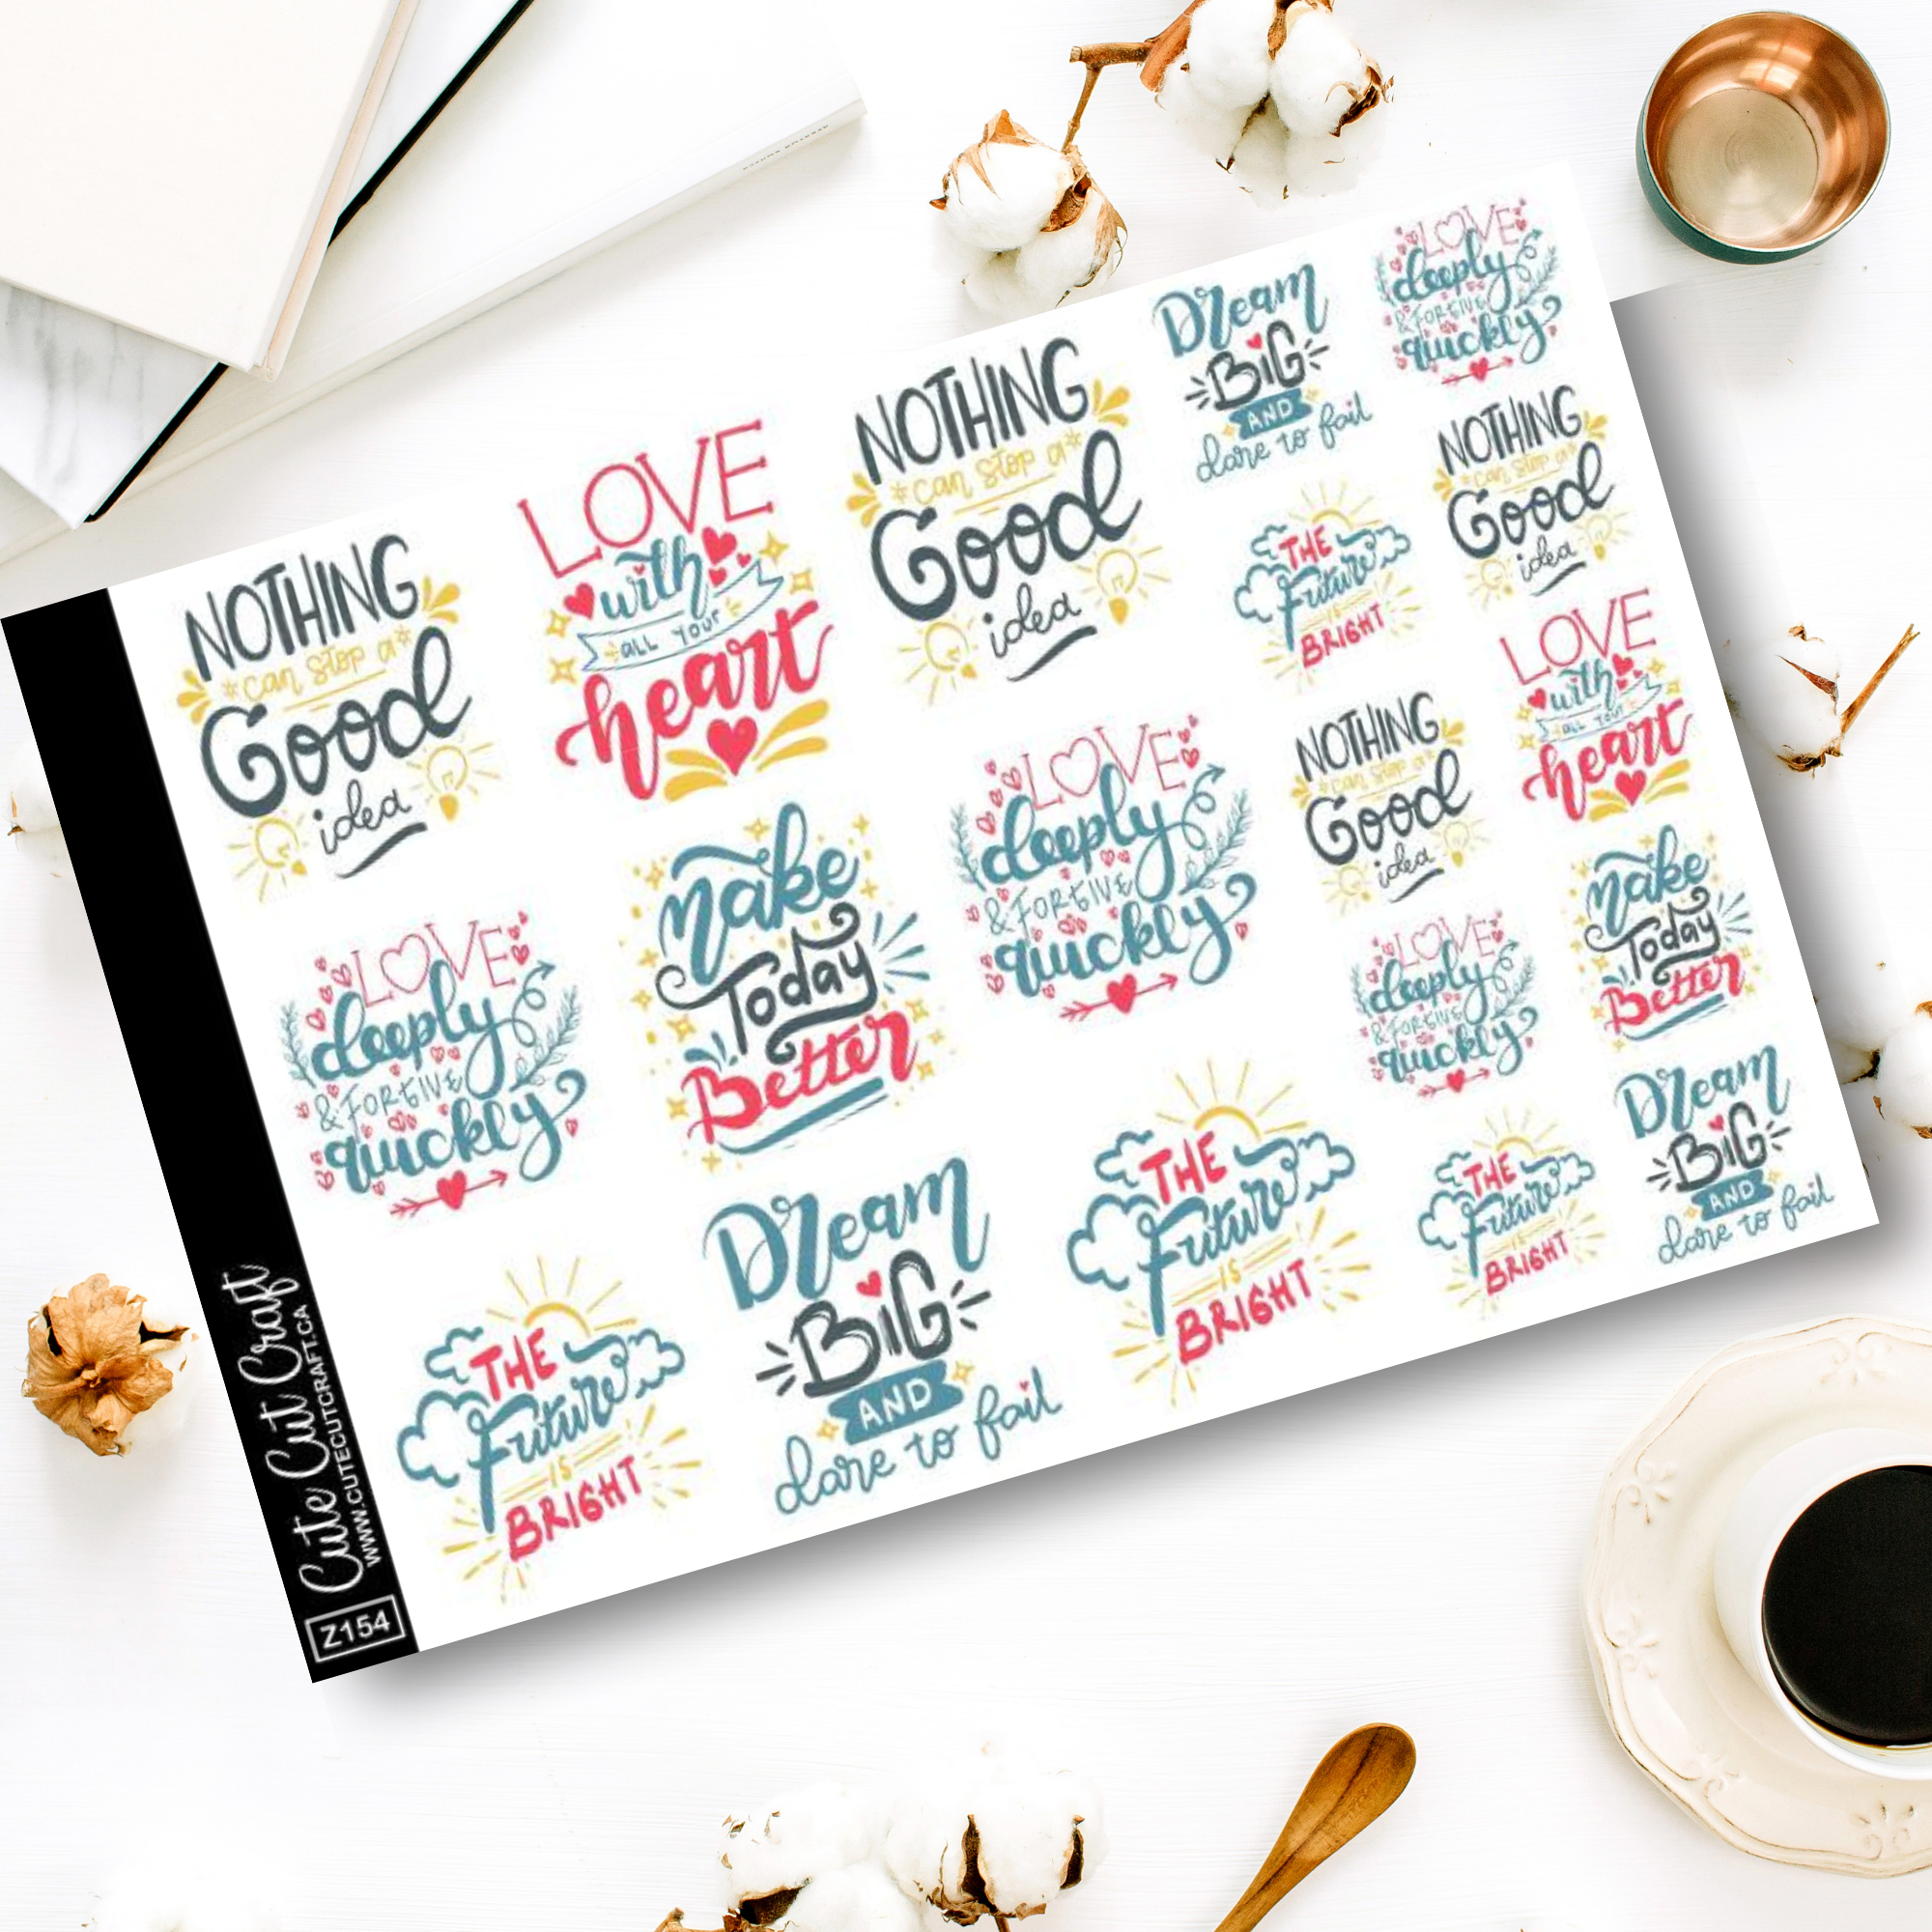 NOTHING
*can stop a*
Good
idea
LOVE
with
all your
heart
NOTHING
*can stop a*
Good
idea
Dream
BIG
AND
dare to fail
LOVE
deeply
& FORGIVE
quickly
LOVE
deeply
& FORGIVE
quickly
make
Today
Better
LOVE
deeply
& FORGIVE
quickly
THE
Future
IS
BRIGHT
NOTHING
*can stop a*
Good
idea
THE
Future
IS
BRIGHT
Dream
BIG
AND
dare to fail
THE
Future
IS
BRIGHT
NOTHING
*can stop a*
Good
idea
LOVE
with
all your
heart
LOVE
deeply
& FORGIVE
quickly
make
Today
Better
THE
Future
IS
BRIGHT
Dream
BIG
AND
dare to fail
Cute Cut Craft
WWW.CUTECUTCRAFT.CA
Z154